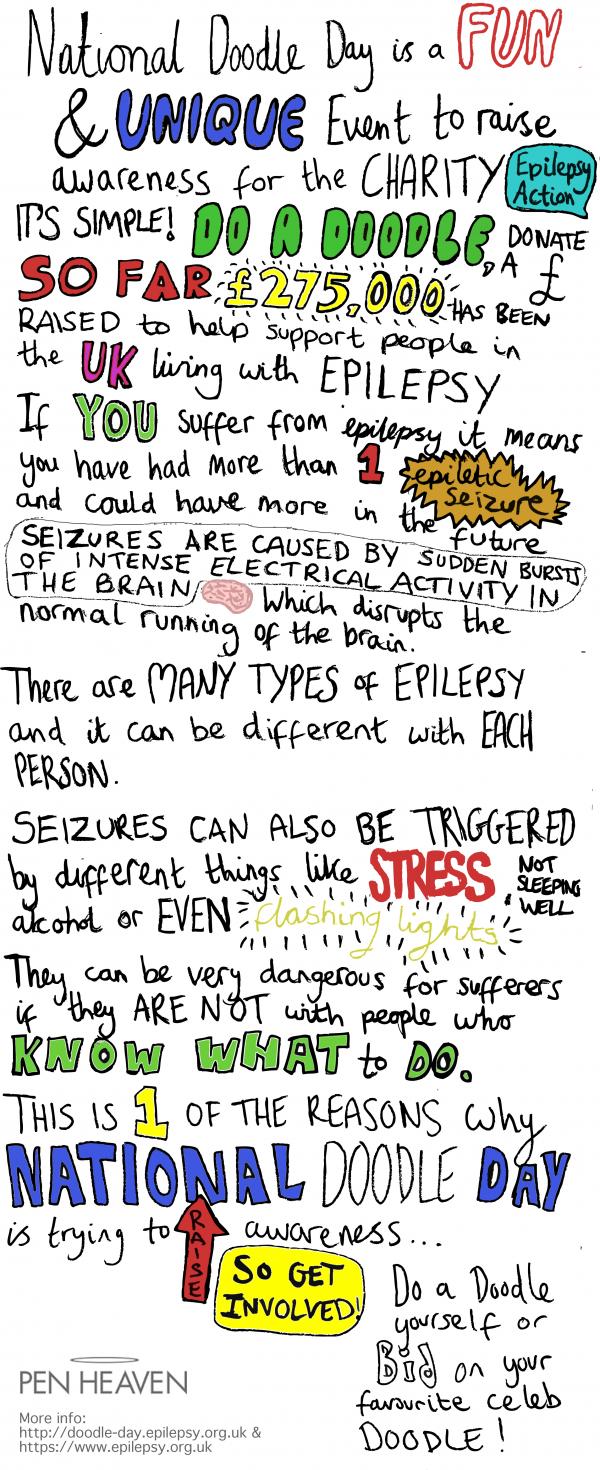 National Doodle Day is a FUN
& UNIQUE Event to raise
awareness for the CHARITY Epilepsy Action
IT'S SIMPLE! DO A DOODLE, DONATE A £
SO FAR £275,000 HAS BEEN
RAISED to help support people in
the UK living with EPILEPSY
If YOU suffer from epilepsy it means
you have had more than 1 epiletic seizure
and could have more in the future
SEIZURES ARE CAUSED BY SUDDEN BURSTS
OF INTENSE ELECTRICAL ACTIVITY IN
THE BRAIN which disrupts the
normal running of the brain.
There are MANY TYPES of EPILEPSY
and it can be different with EACH
PERSON.
SEIZURES CAN ALSO BE TRIGGERED
by different things like STRESS, NOT SLEEPING WELL
alcohol or EVEN flashing lights
They can be very dangerous for sufferers
if they ARE NOT with people who
KNOW WHAT to DO.
THIS IS 1 OF THE REASONS why
NATIONAL DOODLE DAY
is trying to RAISE awareness...
SO GET
INVOLVED!
Do a Doodle
yourself or
Bid on your
favourite celeb
DOODLE!
PEN HEAVEN
More info:
http://doodle-day.epilepsy.org.uk &
https://www.epilepsy.org.uk